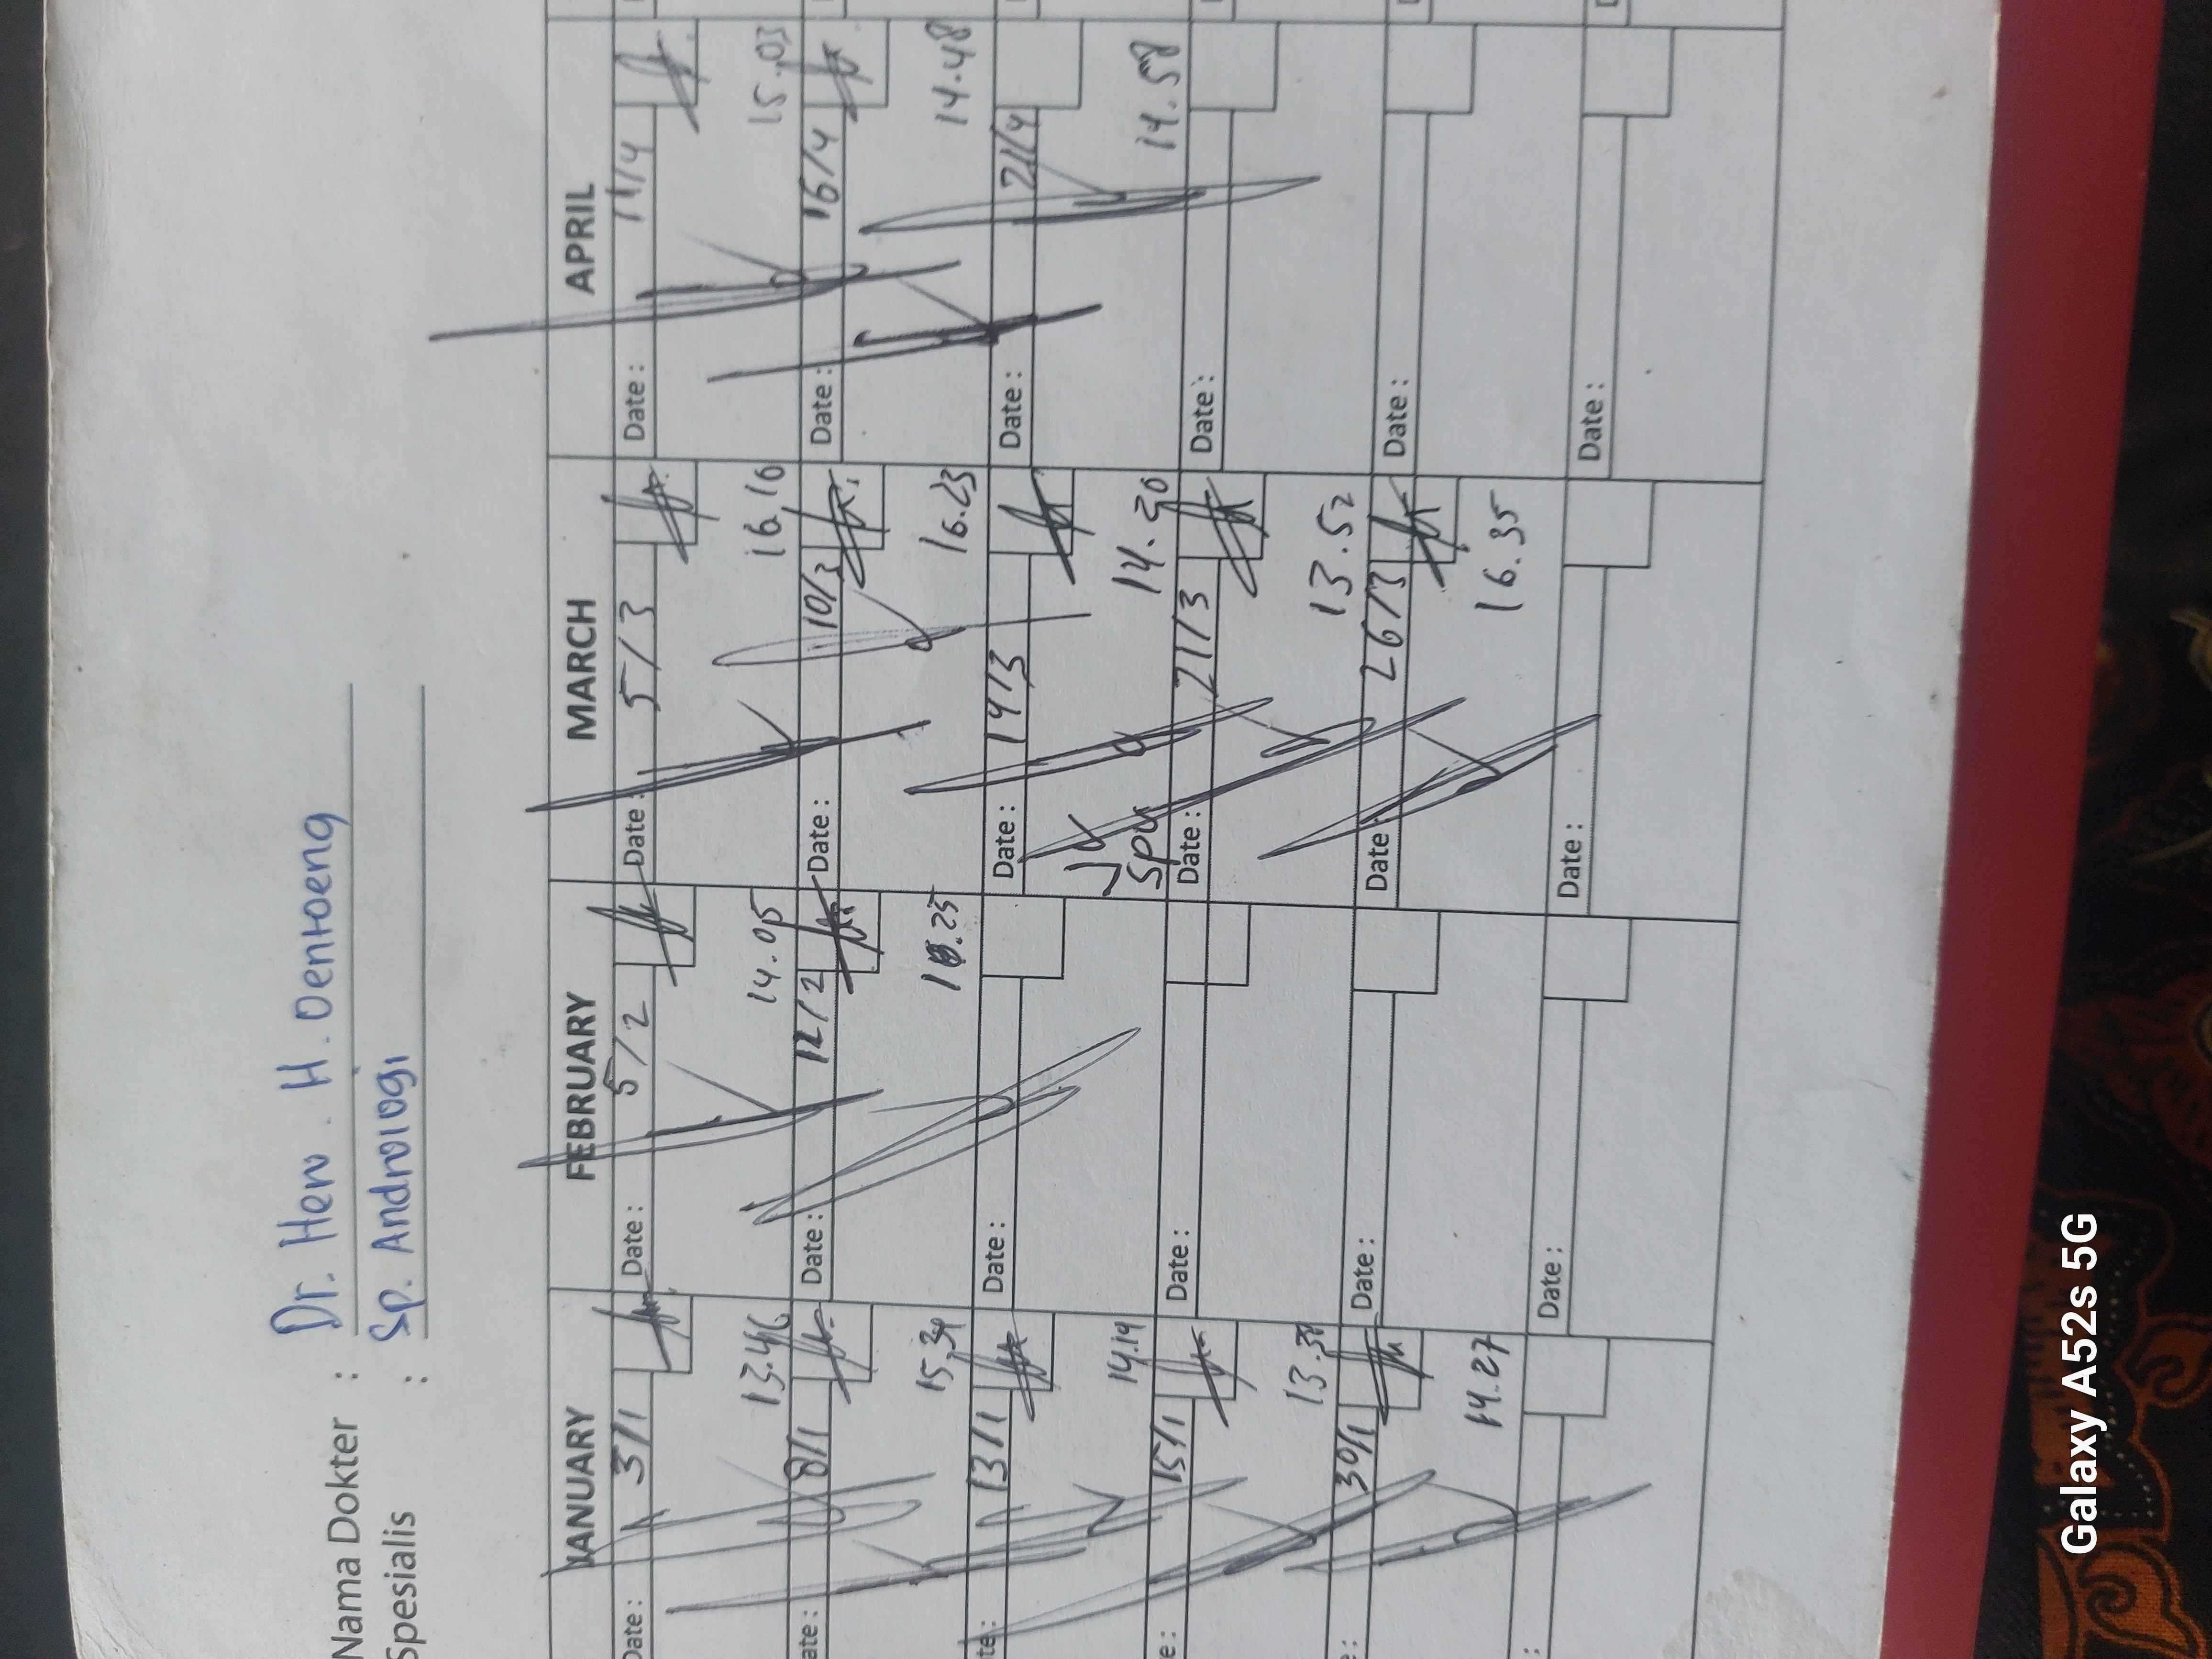 Nama Dokter : Dr. Hero . H . Oentoeng
Spesialis : Sp. Andrologi
JANUARY FEBRUARY MARCH APRIL
Date : 3/1 Date : 5/2 Date : 5/3 Date : 11/4
13.46 14.05 16.16 15.03
ate : 8/1 Date : 12/2 Date : 10/3 Date : 16/4
15.34 16.23 14.48
te : 13/1 Date : Date : 14/3 Date : 21/4
14.19 14.20 14.58
e : 15/1 Date : Date : 21/3 Date :
13.38 13.52
: 30/1 Date : Date : 26/3 Date :
14.27 16.35
: Date : Date : Date :
Galaxy A52s 5G